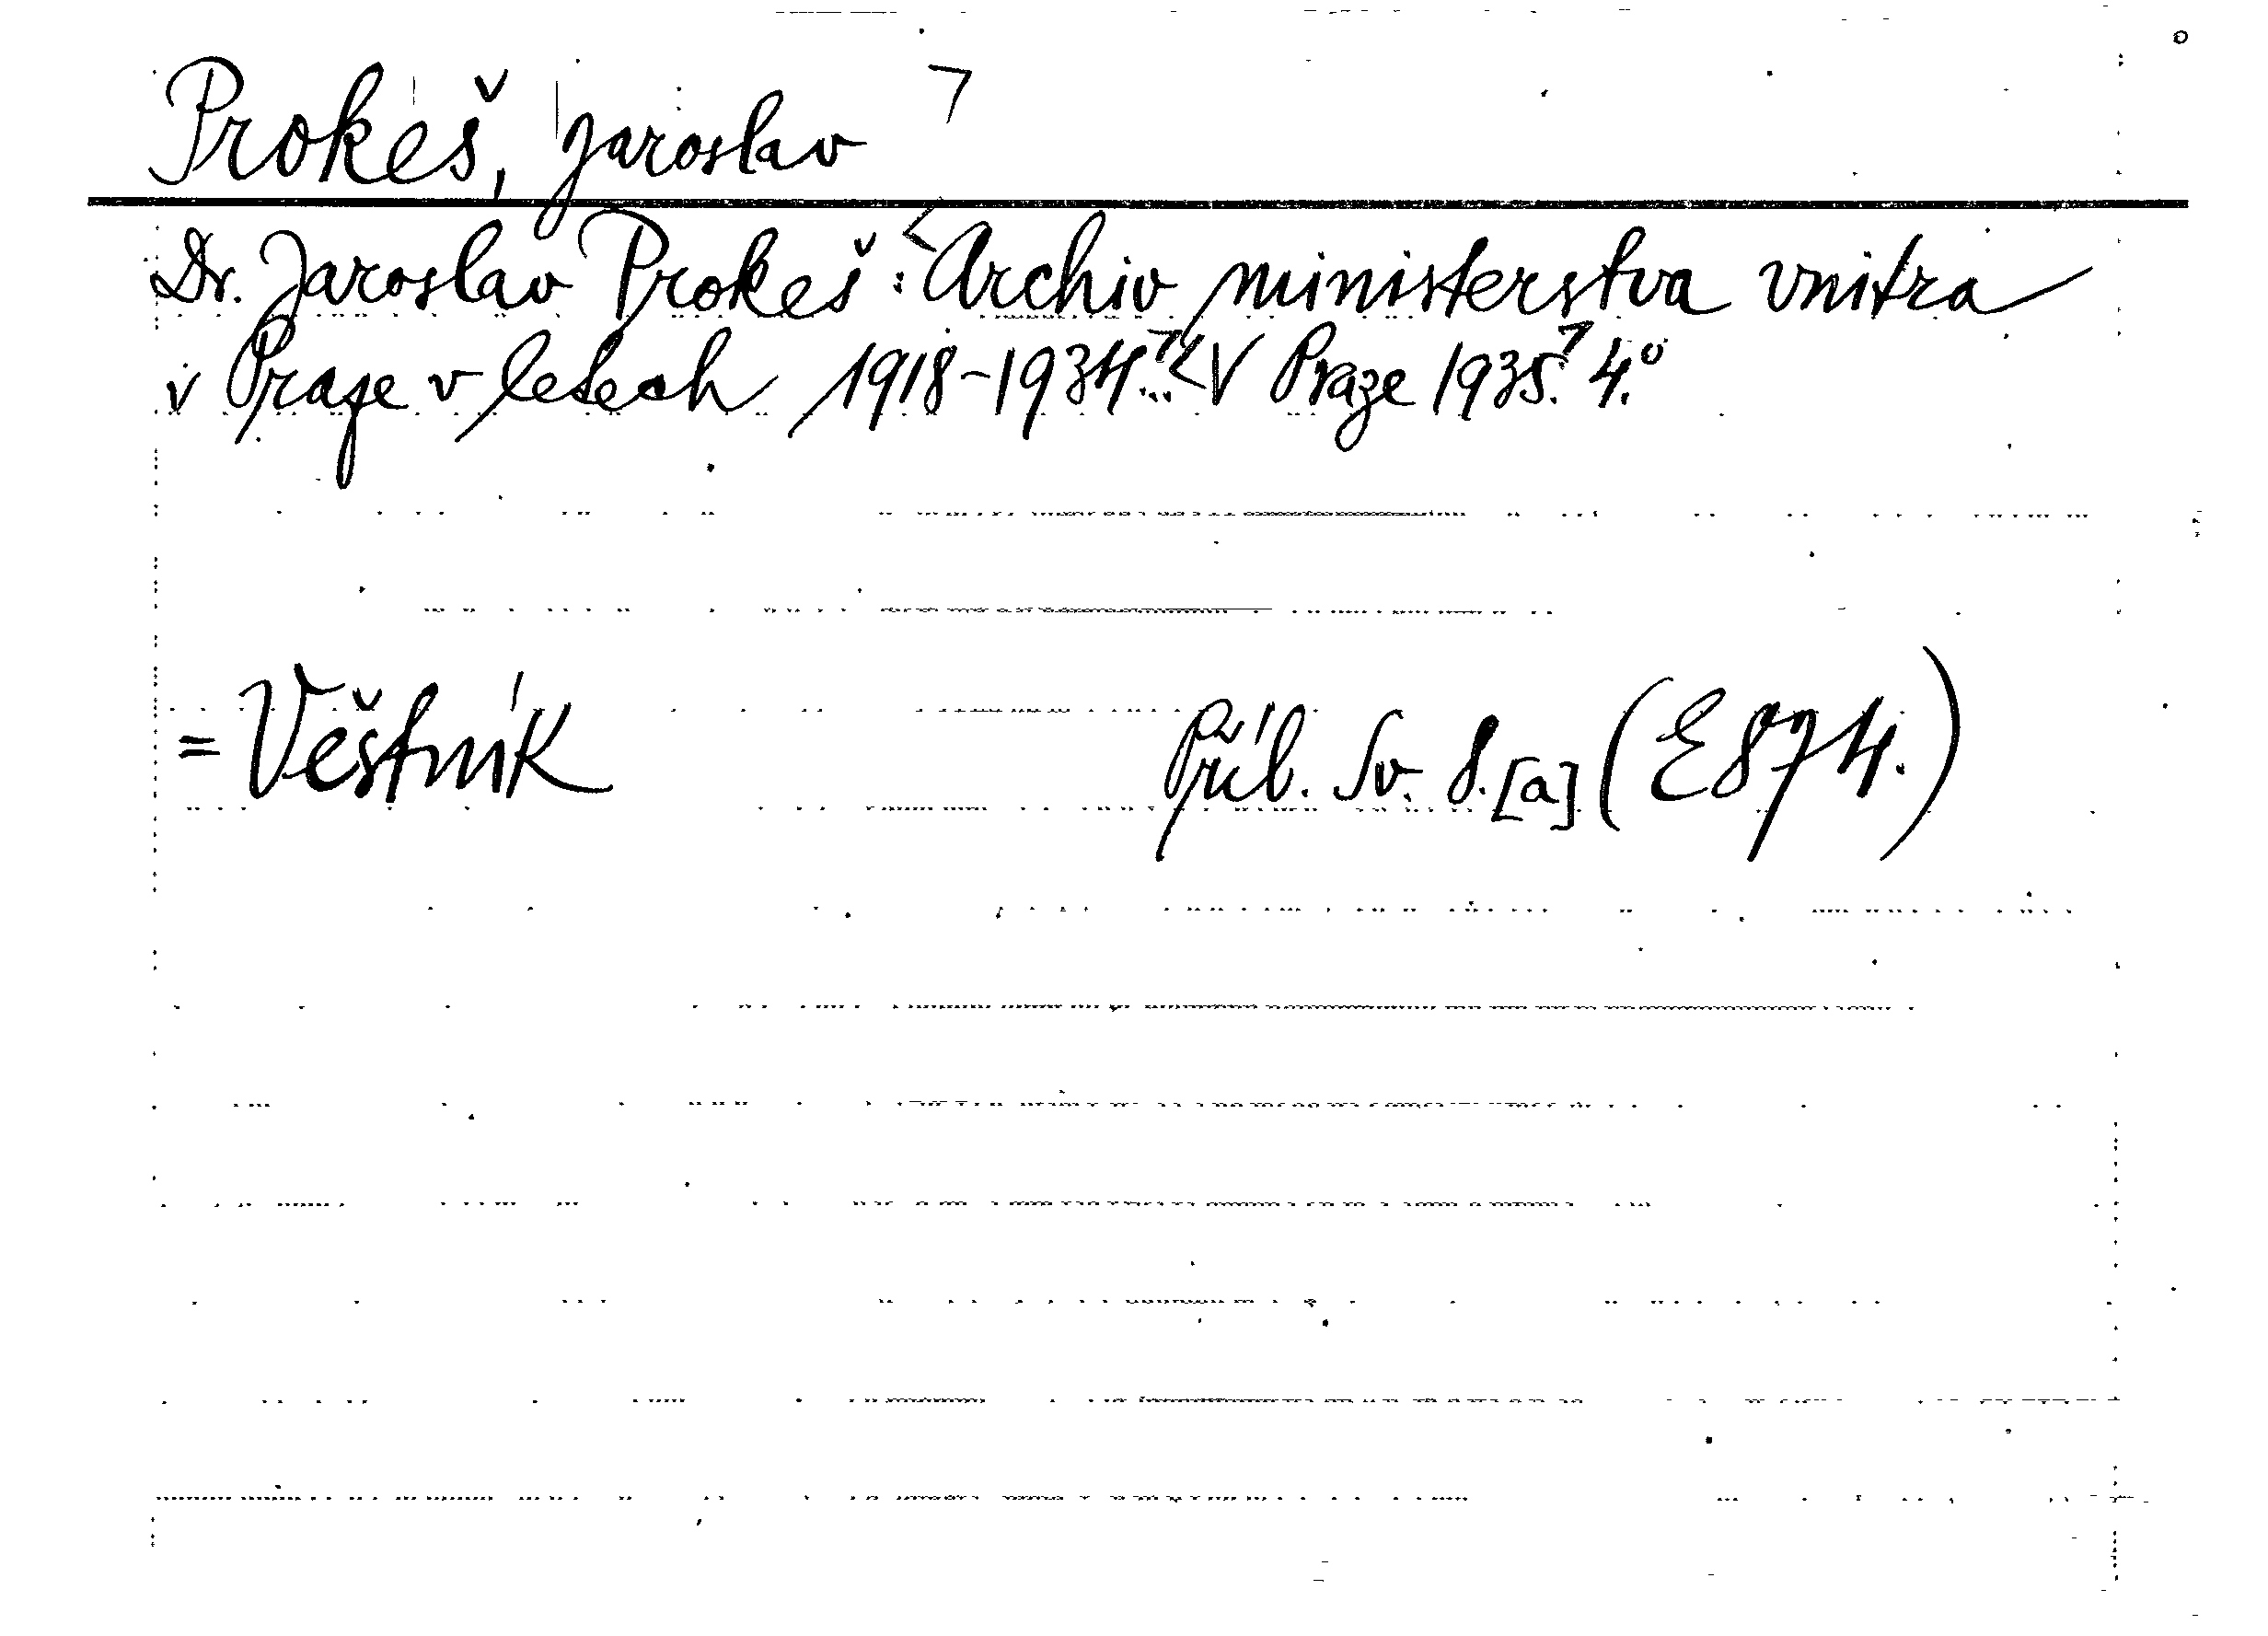 Prokeš, Jaroslav
Dr. Jaroslav Prokeš: Archiv ministerstva vnitra
v Praze v letech 1918-1934... V Praze 1935. 4.°
= Věštník Příb. Sv. 8.[a] (E 874.)